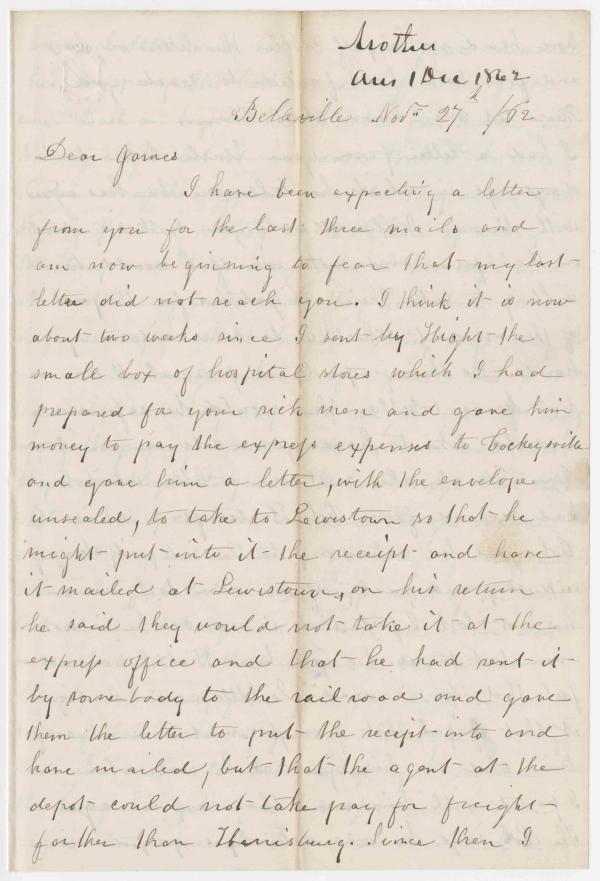 Mother
Ans 1 Dec 1862
Belleville Novr 27th /62
Dear James
I have been expecting a letter
from you for the last three mails and
am now beginning to fear that my last
letter did not reach you. I think it is now
about two weeks since I sent by Hight the
small box of hospital stores which I had
prepared for your sick men and gave him
money to pay the express expenses to Cockeysville
and gave him a letter, with the envelope
unsealed, to take to Lewistown so that he
might put into it the receipt and have
it mailed at Lewistown, on his return
he said they would not take it at the
express office and that he had sent it
by some body to the railroad and gave
them the letter to put the receipt into and
have mailed, but that the agent at the
depot could not take pay for freight
farther than Harrisburg. Since then I